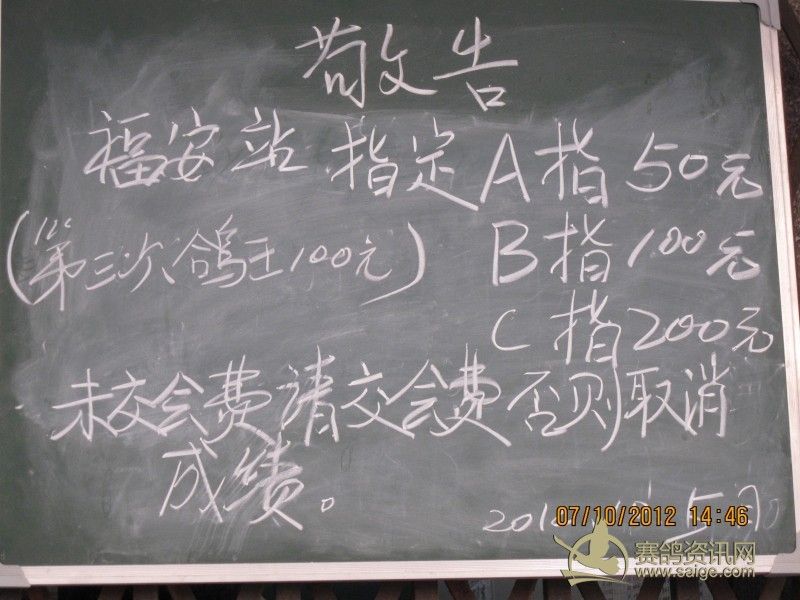 敬告
福安站 指定 A指 50元
(第三次鸽王100元) B指 100元
C指 200元
未交会费请交会费否则取消
成绩。
07/10/2012 14:46
赛鸽资讯网
www.saige.com